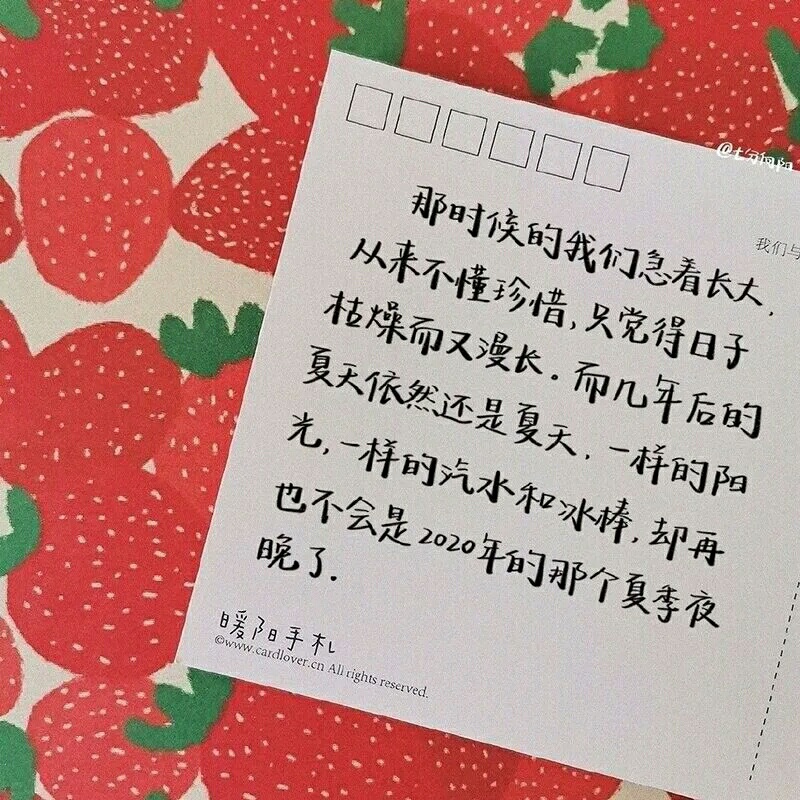 @七分向阳
我们与
那时候的我们急着长大,
从来不懂珍惜,只觉得日子
枯燥而又漫长.而几年后的
夏天依然还是夏天,一样的阳
光,一样的汽水和冰棒,却再
也不会是2020年的那个夏季夜
晚了.
暖阳手札
©www.cardlover.cn All rights reserved.